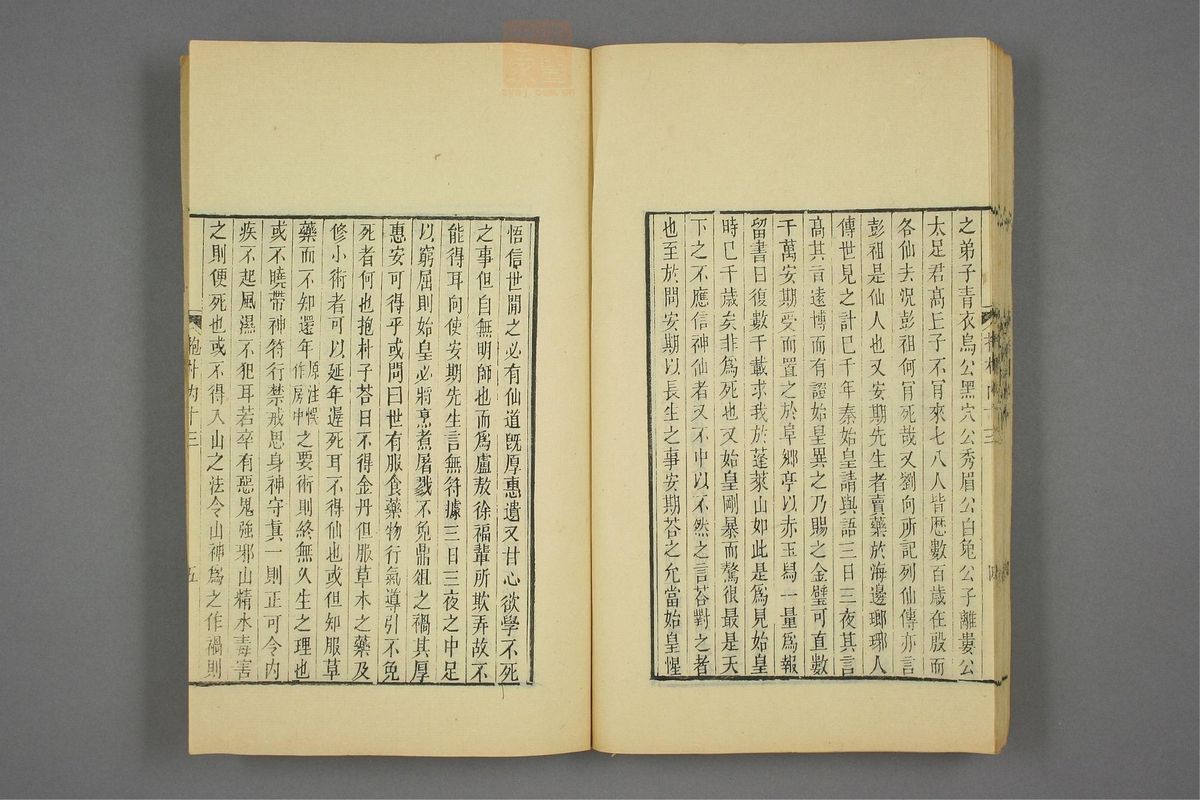 之弟子青衣烏公黑穴公秀眉公白兔公子離婁公
太足君高丘子不肯來七八人皆歷數百歲在殷而
各仙去況彭祖何肯死哉又劉向所記列仙傳亦言
彭祖是仙人也又安期先生者賣藥於海邊瑯琊人
傳世見之計已千年秦始皇請與語三日三夜其言
高其言遠博而有證始皇異之乃賜之金璧可直數
千萬安期受而置之於阜鄉亭以赤玉舄一量爲報
留書曰復數千載求我於蓬萊山如此是爲見始皇
時已千歲矣非爲死也又始皇剛暴而驁很最是天
下之不應信神仙者又不中以不然之言荅對之者
也至於問安期以長生之事安期荅之允當始皇惺
悟信世閒之必有仙道旣厚惠遺又甘心欲學不死
之事但自無明師也而爲盧敖徐福輩所欺弄故不
能得耳向使安期先生言無符據三日三夜之中足
以窮屈則始皇必將烹煮屠戮不免鼎俎之禍其厚
惠安可得乎或問曰世有服食藥物行氣導引不免
死者何也抱朴子荅曰不得金丹但服草木之藥及
修小術者可以延年遲死耳不得仙也或但知服草
藥而不知還年原注悞作房中之要術則終無久生之理也
或不曉帶神符行禁戒思身神守眞一則正可令內
疾不起風濕不犯耳若卒有惡鬼強邪山精水毒害
之則便死也或不得入山之法令山神爲之作禍則
抱朴內十三
五